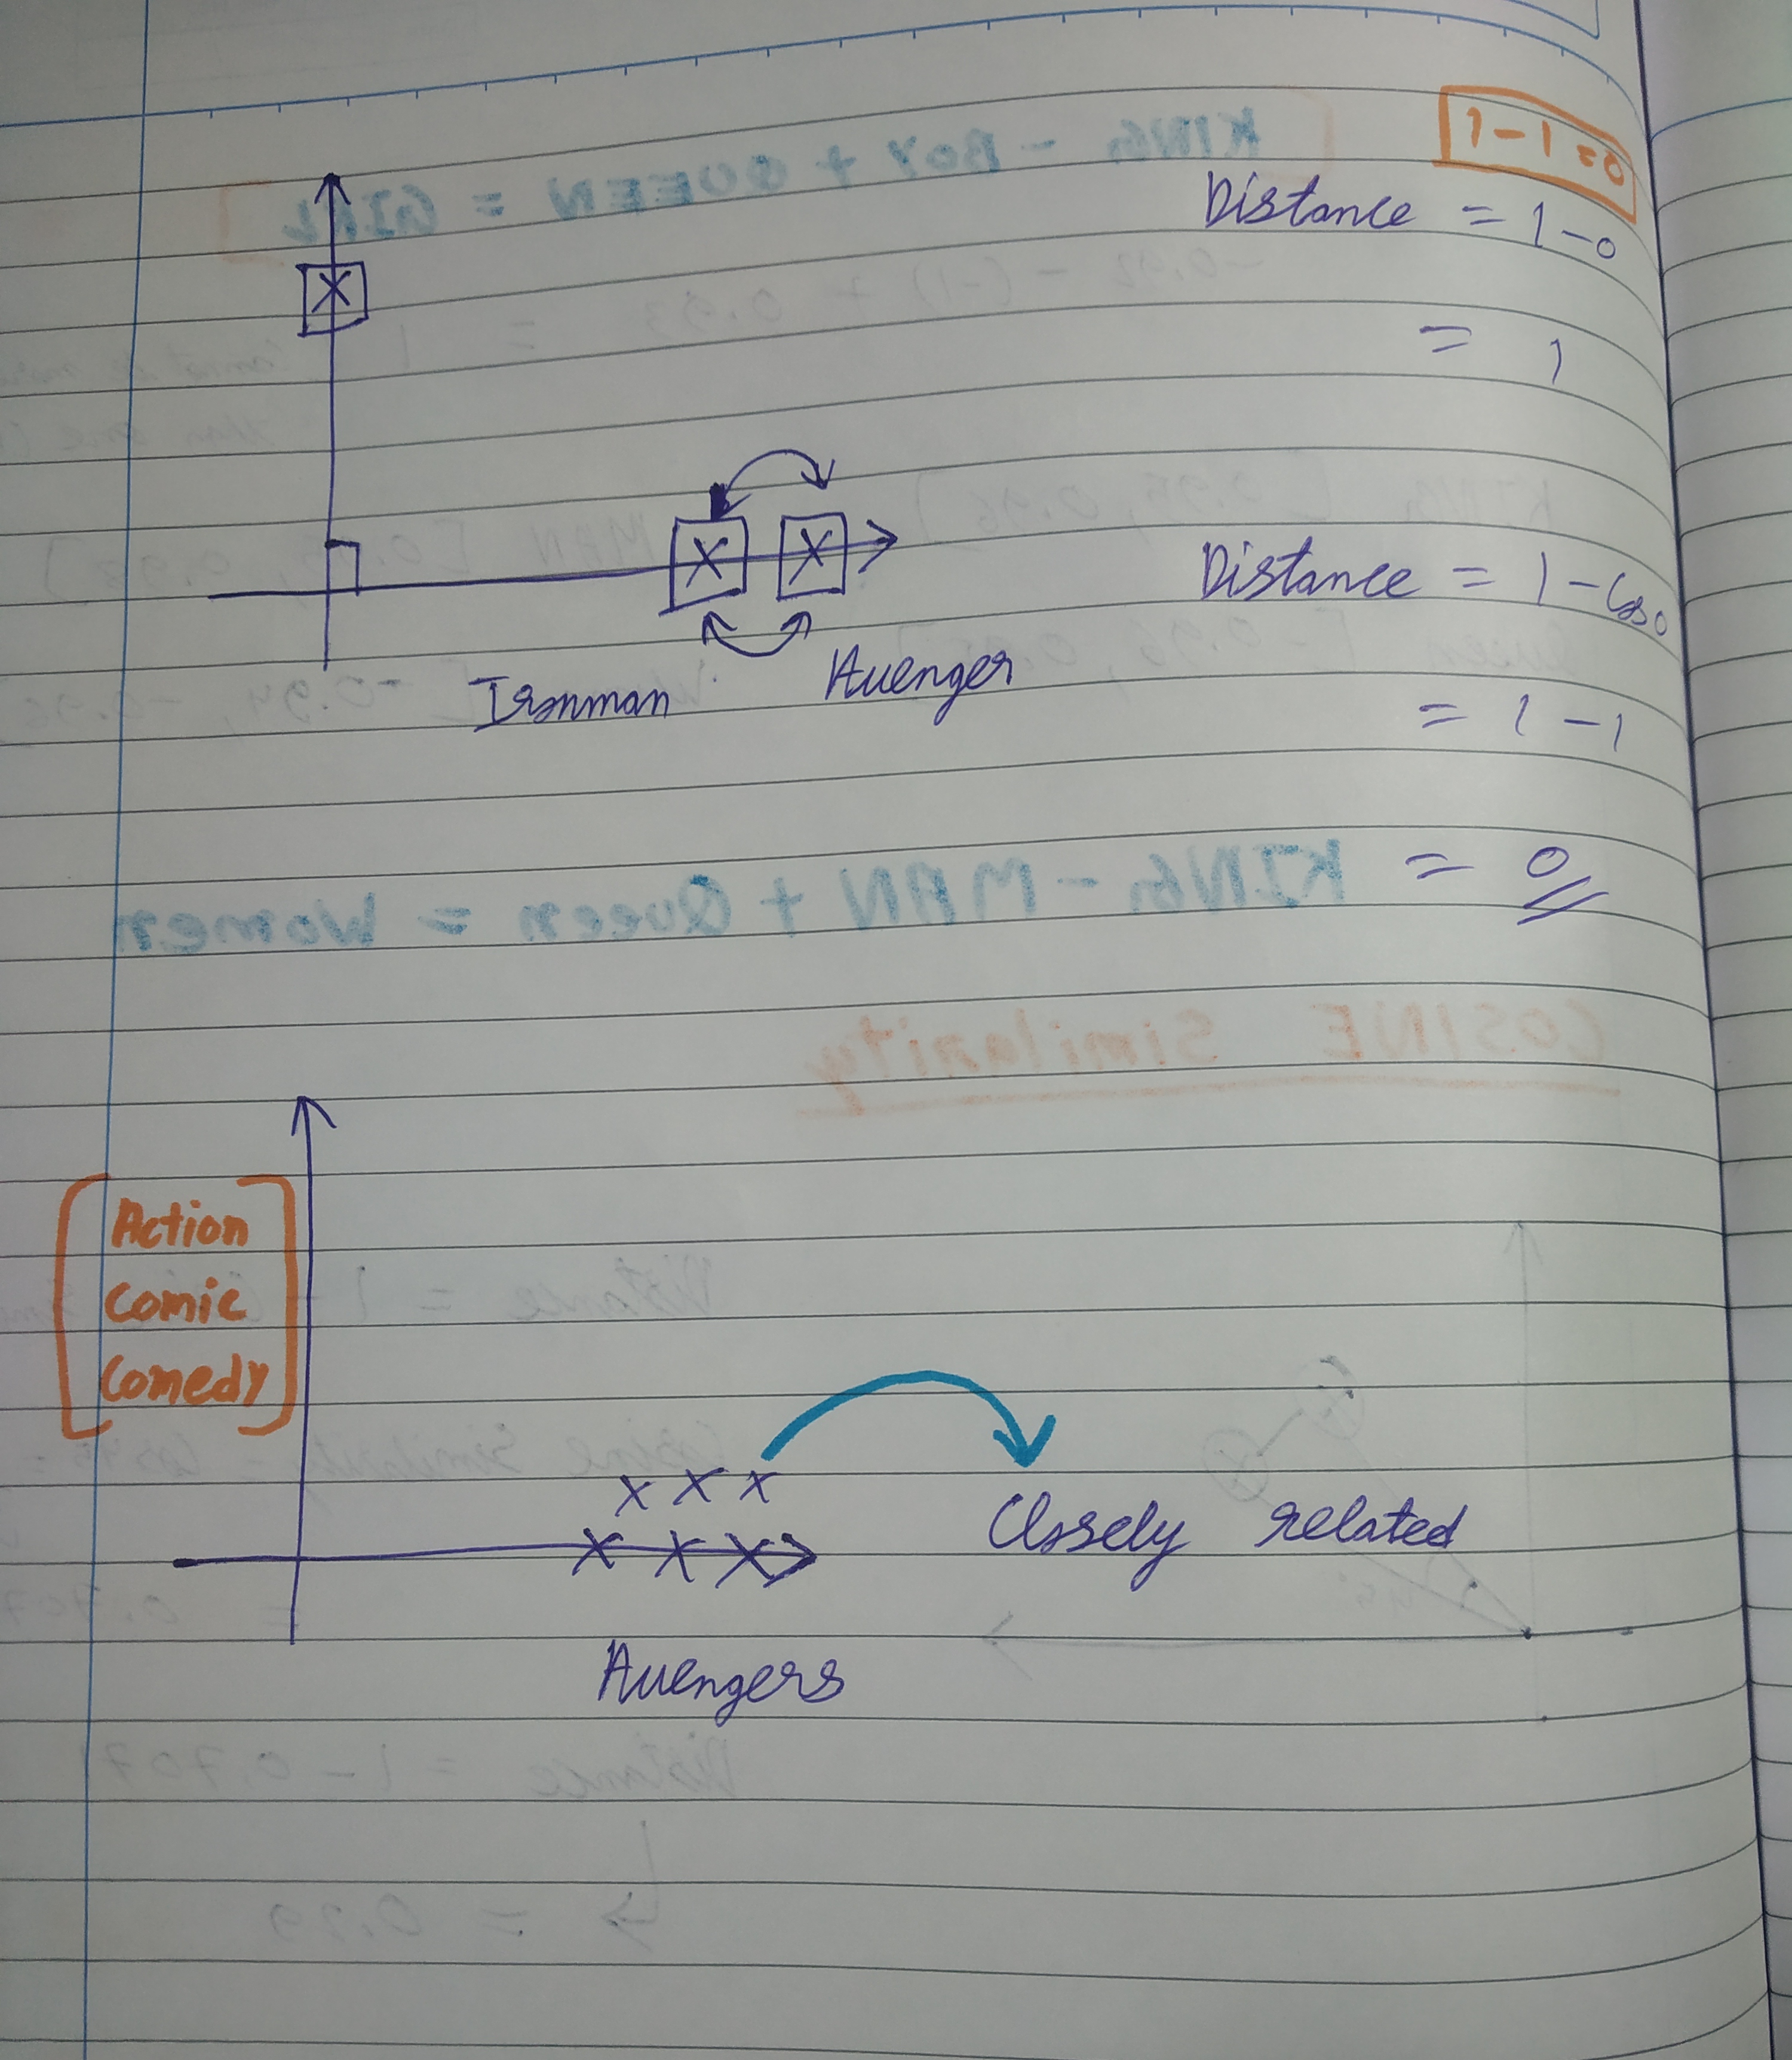 1-1=0
Distance = 1-0
= 1
Ironman Avenger
Distance = 1-Cos0
= 1-1
= 0
Action
Comic
Comedy
x x x
x x x
Closely related
Avengers